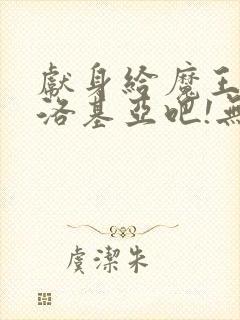 獻身給魔王
洛基亞吧!無
虞潔朱